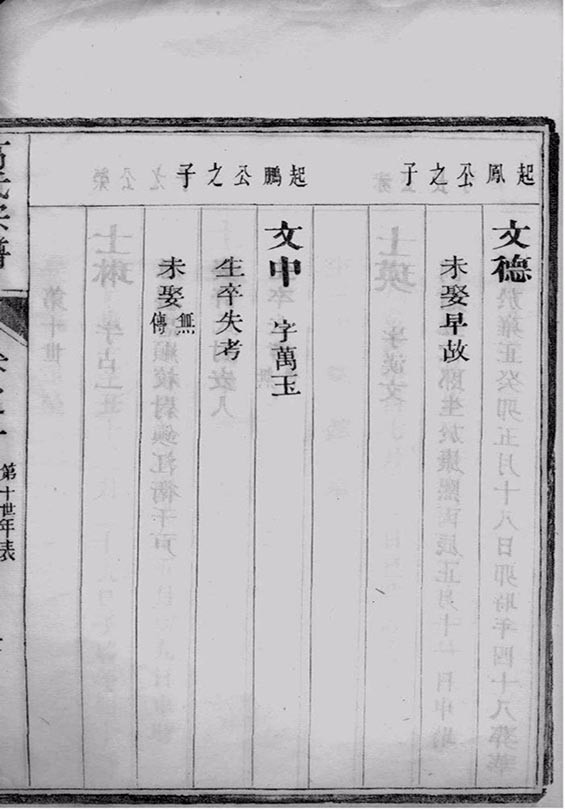 起鳳公之子
文德
未娶早故
起鵬公之子
文中 字萬玉
生卒失考
未娶無傳
氏宗譜
第十世年表